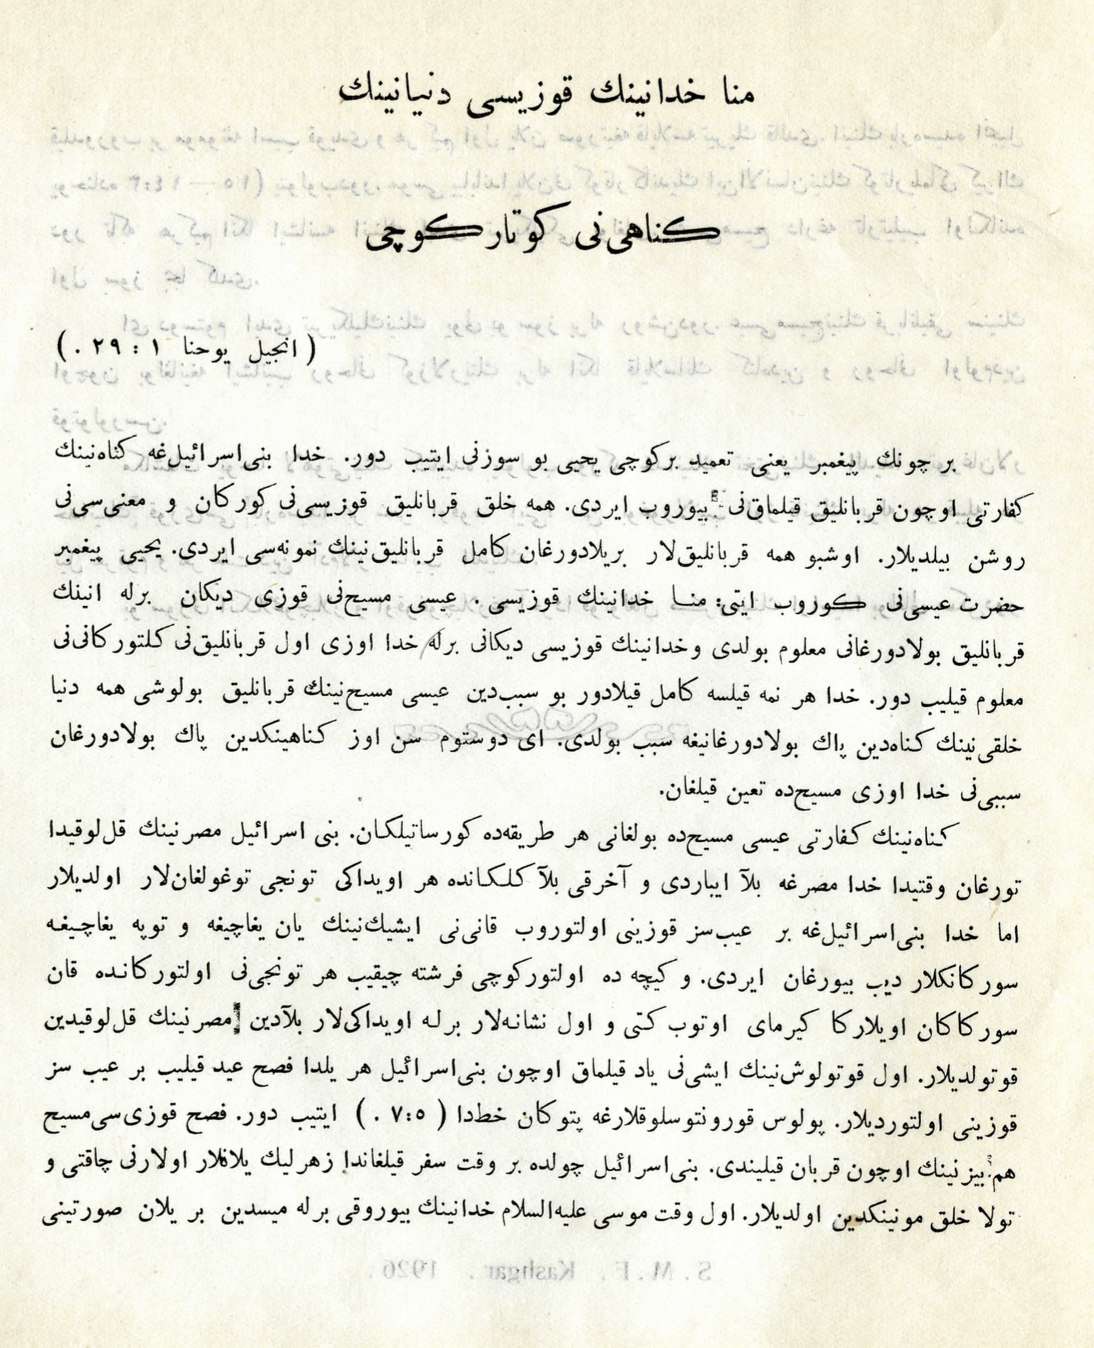 منا خدانینك قوزیسی دنیانینك
كناهی‌نی كوتاركوچی
( انجیل یوحنا ۱ : ۲۹ . )
بر چونك پیغمبر یعنی تعمید بركوچی یحیی بو سوزنی ایتیب دور. خدا بنی‌اسرائیل‌غه كناه‌نینك
كفارتی اوچون قربانلیق قیلماق‌نی بیوروب ایردی. همه خلق قربانلیق قوزیسی‌نی كوركان و معنی‌سی‌نی
روشن بیلدیلار. اوشبو همه قربانلیق‌لار بریلادورغان كامل قربانلیق‌نینك نمونه‌سی ایردی. یحیی پیغمبر
حضرت عیسی‌نی كوروب ایتی: منا خدانینك قوزیسی . عیسی مسیح‌نی قوزی دیكان برله انینك
قربانلیق بولادورغانی معلوم بولدی وخدانینك قوزیسی دیكانی برله خدا اوزی اول قربانلیق‌نی كلتوركانی‌نی
معلوم قیلیب دور. خدا هر نمه قیلسه كامل قیلادور بو سبب‌دین عیسی مسیح‌نینك قربانلیق بولوشی همه دنیا
خلقی‌نینك كناه‌دین پاك بولادورغانیغه سبب بولدی. ای دوستوم سن اوز كناهینكدین پاك بولادورغان
سببی‌نی خدا اوزی مسیح‌ده تعین قیلغان.
كناه‌نینك كفارتی عیسی مسیح‌ده بولغانی هر طریقه‌ده كورساتیلكان. بنی اسرائیل مصرنینك قل‌لوقیدا
تورغان وقتیدا خدا مصرغه بلآ ایباردی و آخرقی بلآ كلكانده هر اویداكی تونجی توغولغان‌لار اولدیلار
اما خدا بنی‌اسرائیل‌غه بر عیب‌سز قوزینی اولتوروب قانی‌نی ایشیك‌نینك یان یغاچیغه و توپه یغاچیغه
سوركانكلار دیب بیورغان ایردی. و كیچه ده اولتوركوچی فرشته چیقیب هر تونجی‌نی اولتوركانده قان
سوركاكان اویلاركا كیرمای اوتوب كتی و اول نشانه‌لار برله اویداكی‌لار بلآدین مصرنینك قل‌لوقیدین
قوتولدیلار. اول قوتولوش‌نینك ایشی‌نی یاد قیلماق اوچون بنی‌اسرائیل هر یلدا فصح عید قیلیب بر عیب سز
قوزینی اولتوردیلار. پولوس قورونتوسلوقلارغه پتوكان خط‌دا ( ۷:۵ . ) ایتیب دور. فصح قوزی‌سی مسیح
هم بیزنینك اوچون قربان قیلیندی. بنی‌اسرائیل چولده بر وقت سفر قیلغاندا زهرلیك یلانلار اولارنی چاقتی و
تولا خلق مونینكدین اولدیلار. اول وقت موسی علیه‌السلام خدانینك بیوروقی برله میسدین بر یلان صورتینی